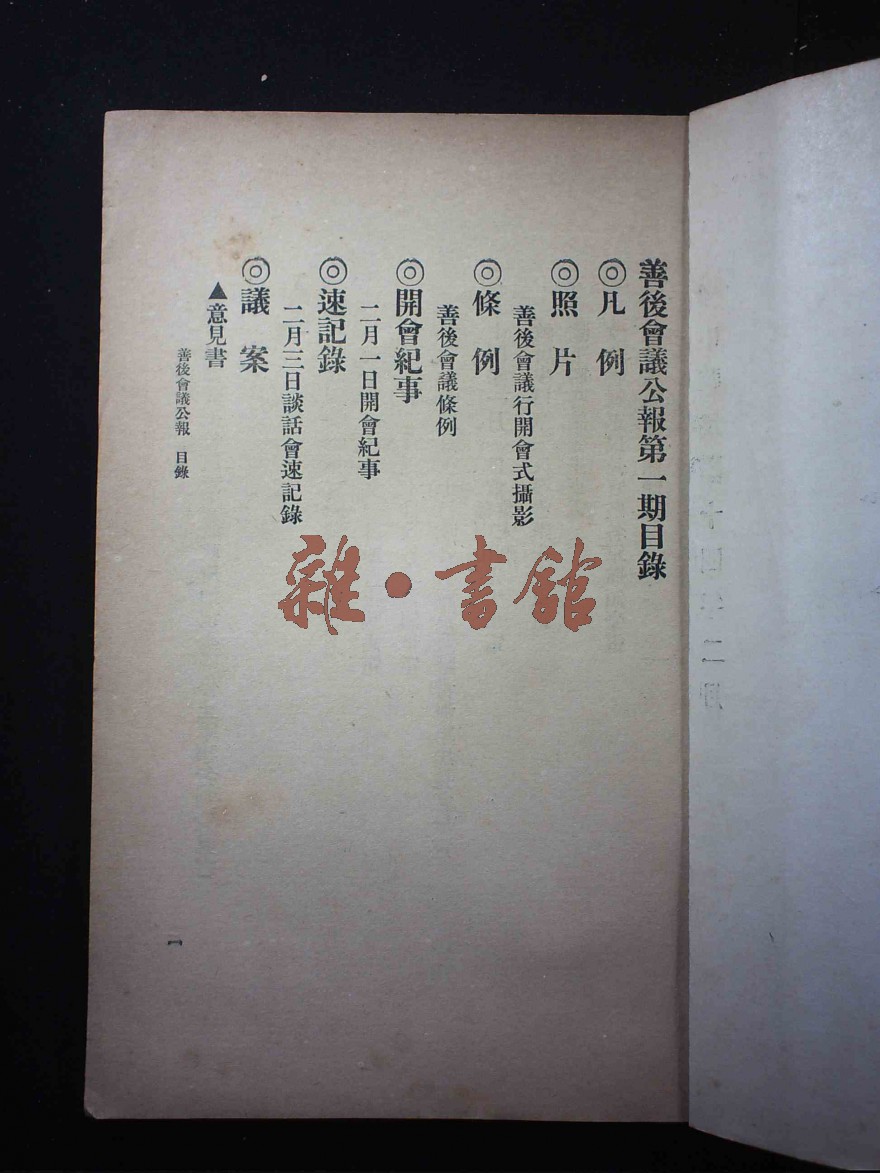 善後會議公報第一期目錄
◎凡例
◎照片
善後會議行開會式攝影
◎條例
善後會議條例
◎開會紀事
二月一日開會紀事
◎速記錄
二月三日談話會速記錄
◎議案
▲意見書
善後會議公報 目錄
一
雜·書館